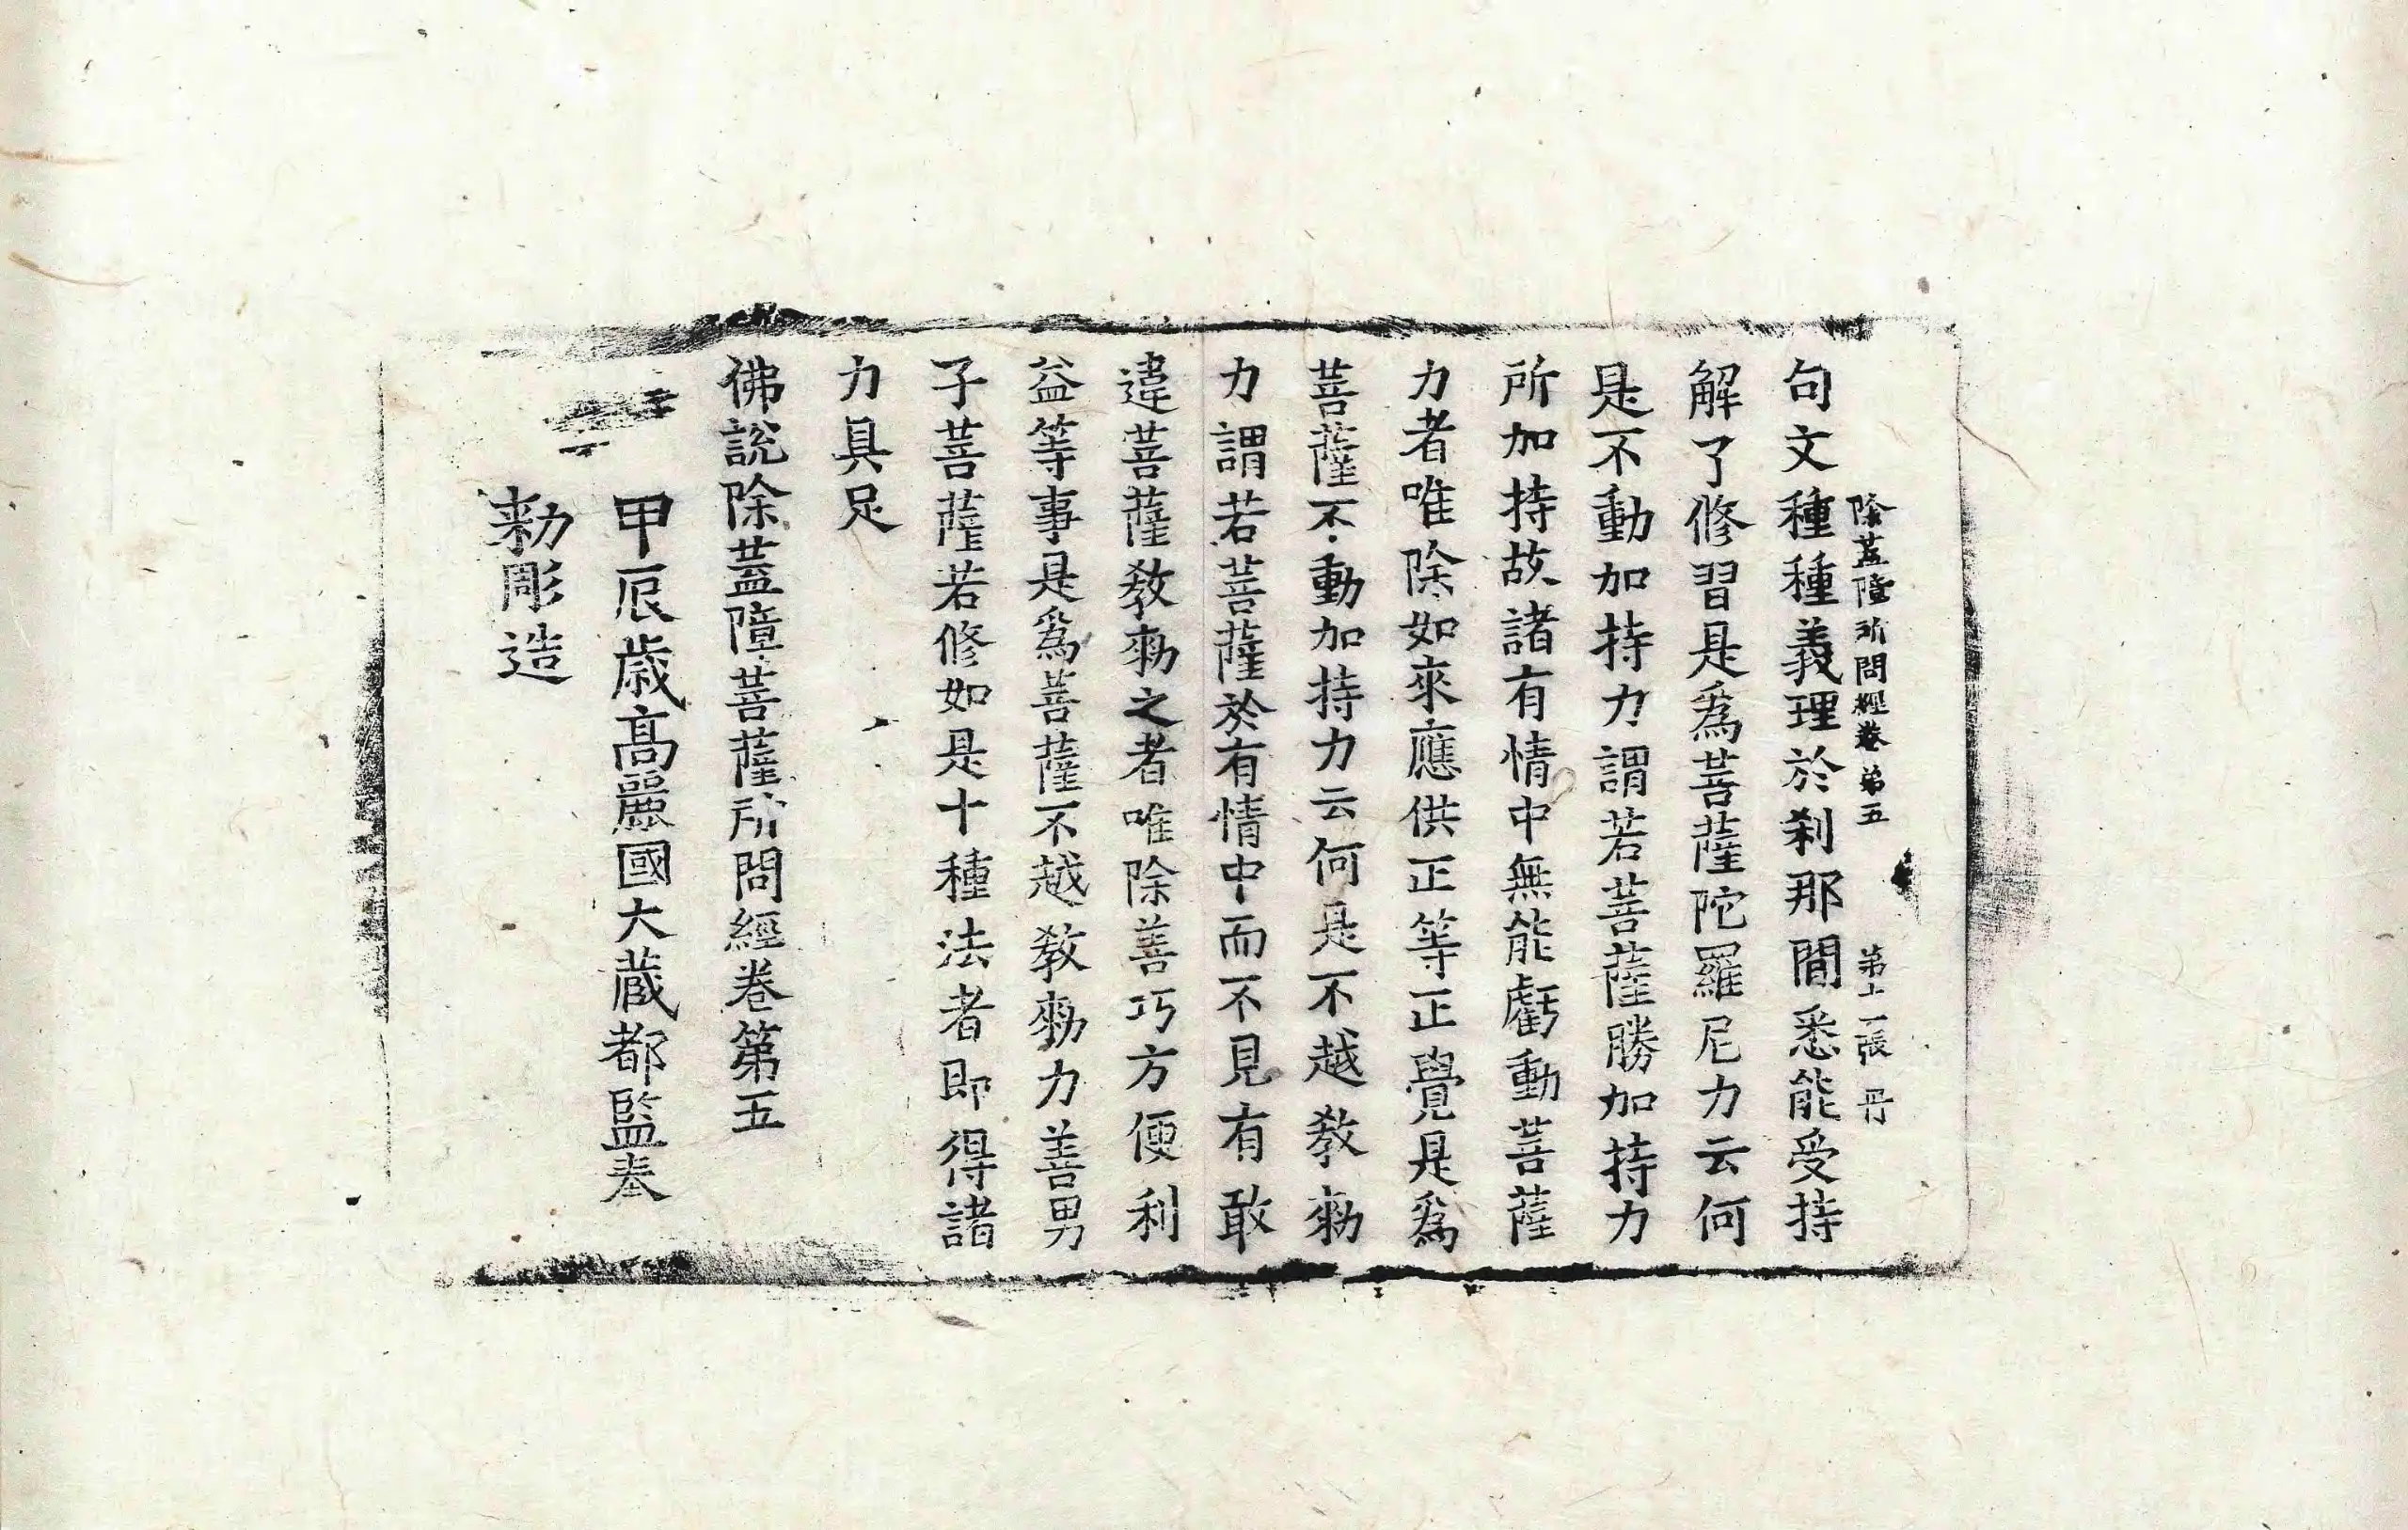 除蓋障所問經卷第五 第十一張 丹
句文種種義理於刹那閒悉能受持
解了修習是爲菩薩陀羅尼力云何
是不動加持力謂若菩薩勝加持力
所加持故諸有情中無能虧動菩薩
力者唯除如來應供正等正覺是爲
菩薩不動加持力云何是不越敎勑
力謂若菩薩於有情中而不見有敢
違菩薩敎勑之者唯除善巧方便利
益等事是爲菩薩不越敎勑力善男
子菩薩若修如是十種法者即得諸
力具足
佛說除蓋障菩薩所問經卷第五
甲辰歲高麗國大藏都監奉
勑彫造